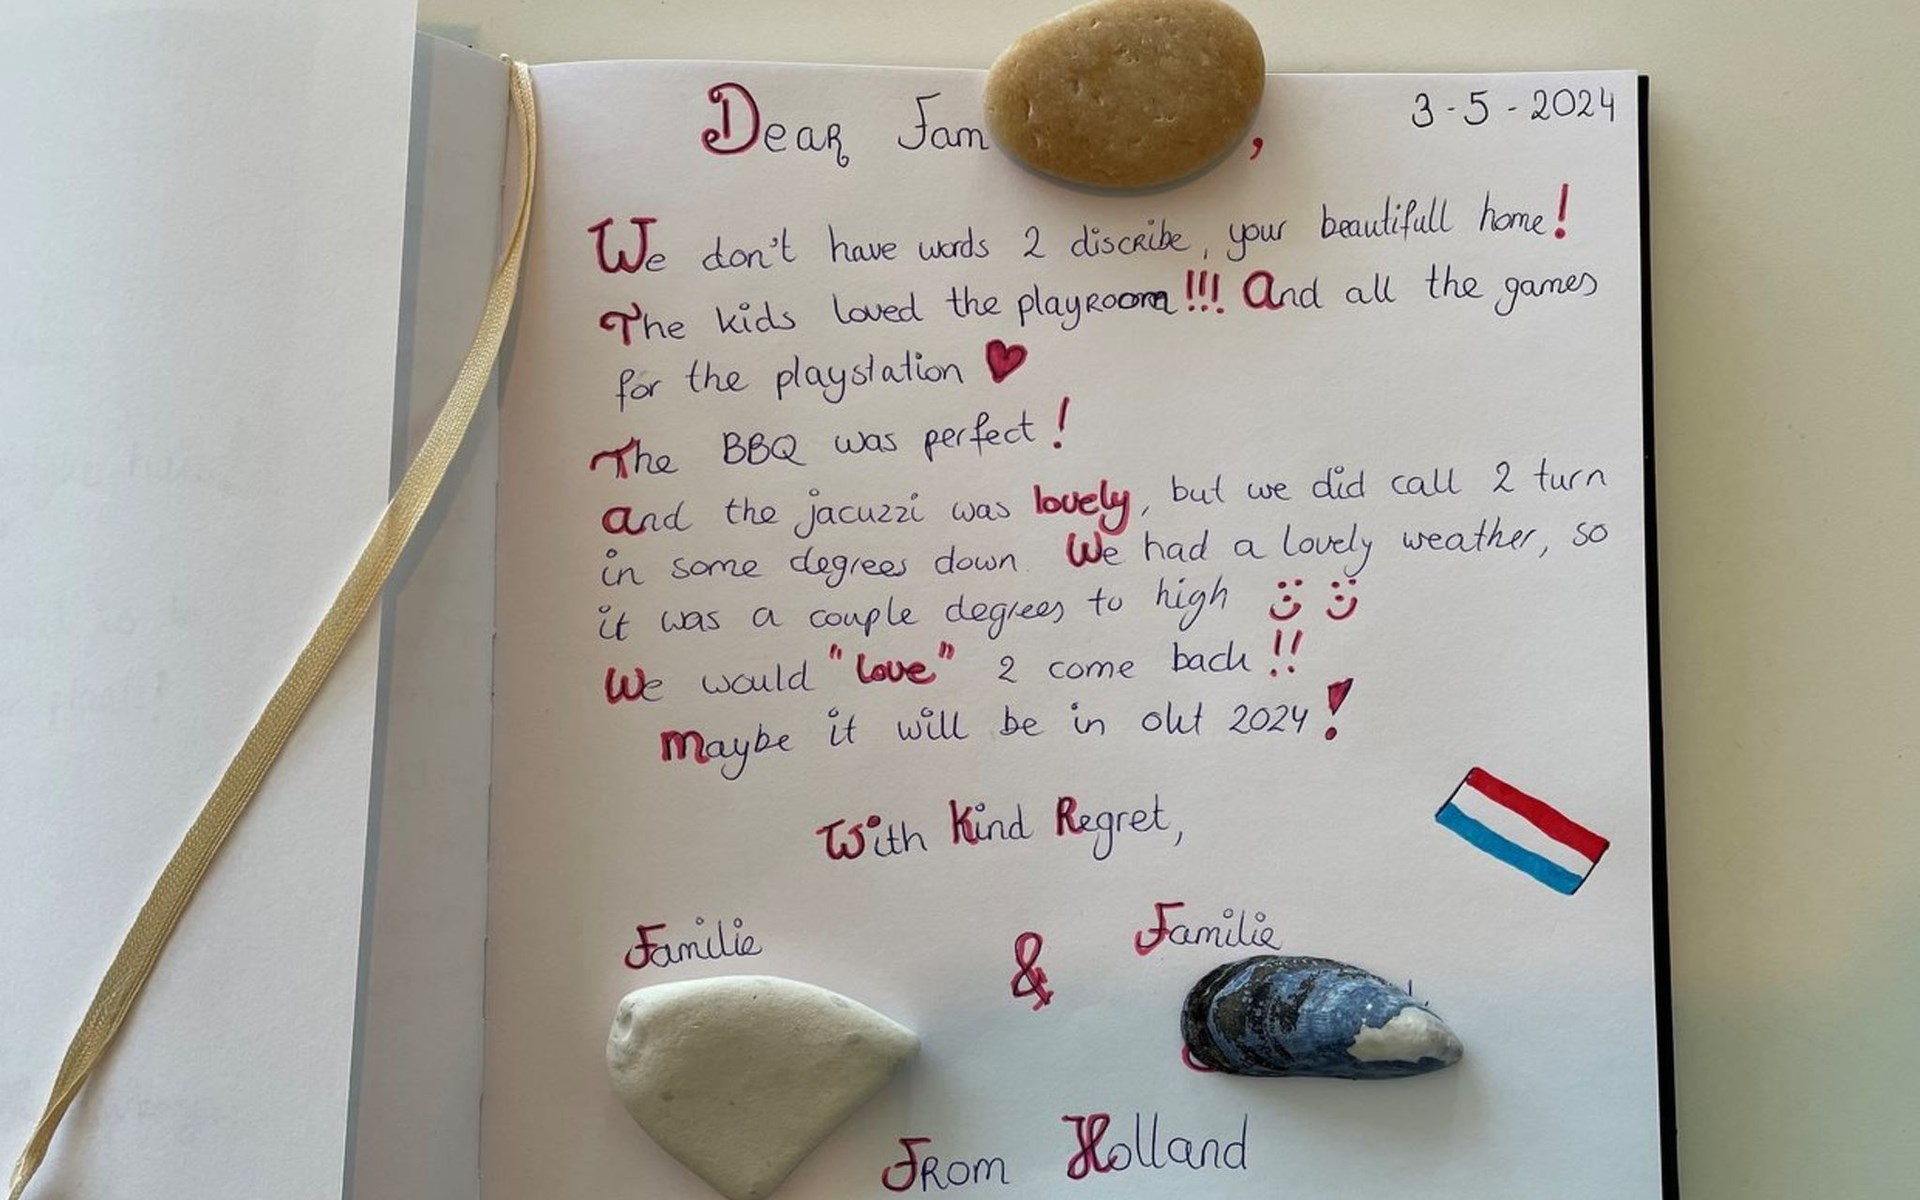 Dear Fam ,
3-5-2024
We don't have words 2 discribe, your beautifull home!
The kids loved the playroom!!! And all the games
for the playstation ♥
The BBQ was perfect!
And the jacuzzi was lovely, but we did call 2 turn
in some degrees down. We had a lovely weather, so
it was a couple degrees to high :) :)
We would "love" 2 come back!!
Maybe it will be in okt 2024!
With Kind Regret,
Familie & Familie
From Holland